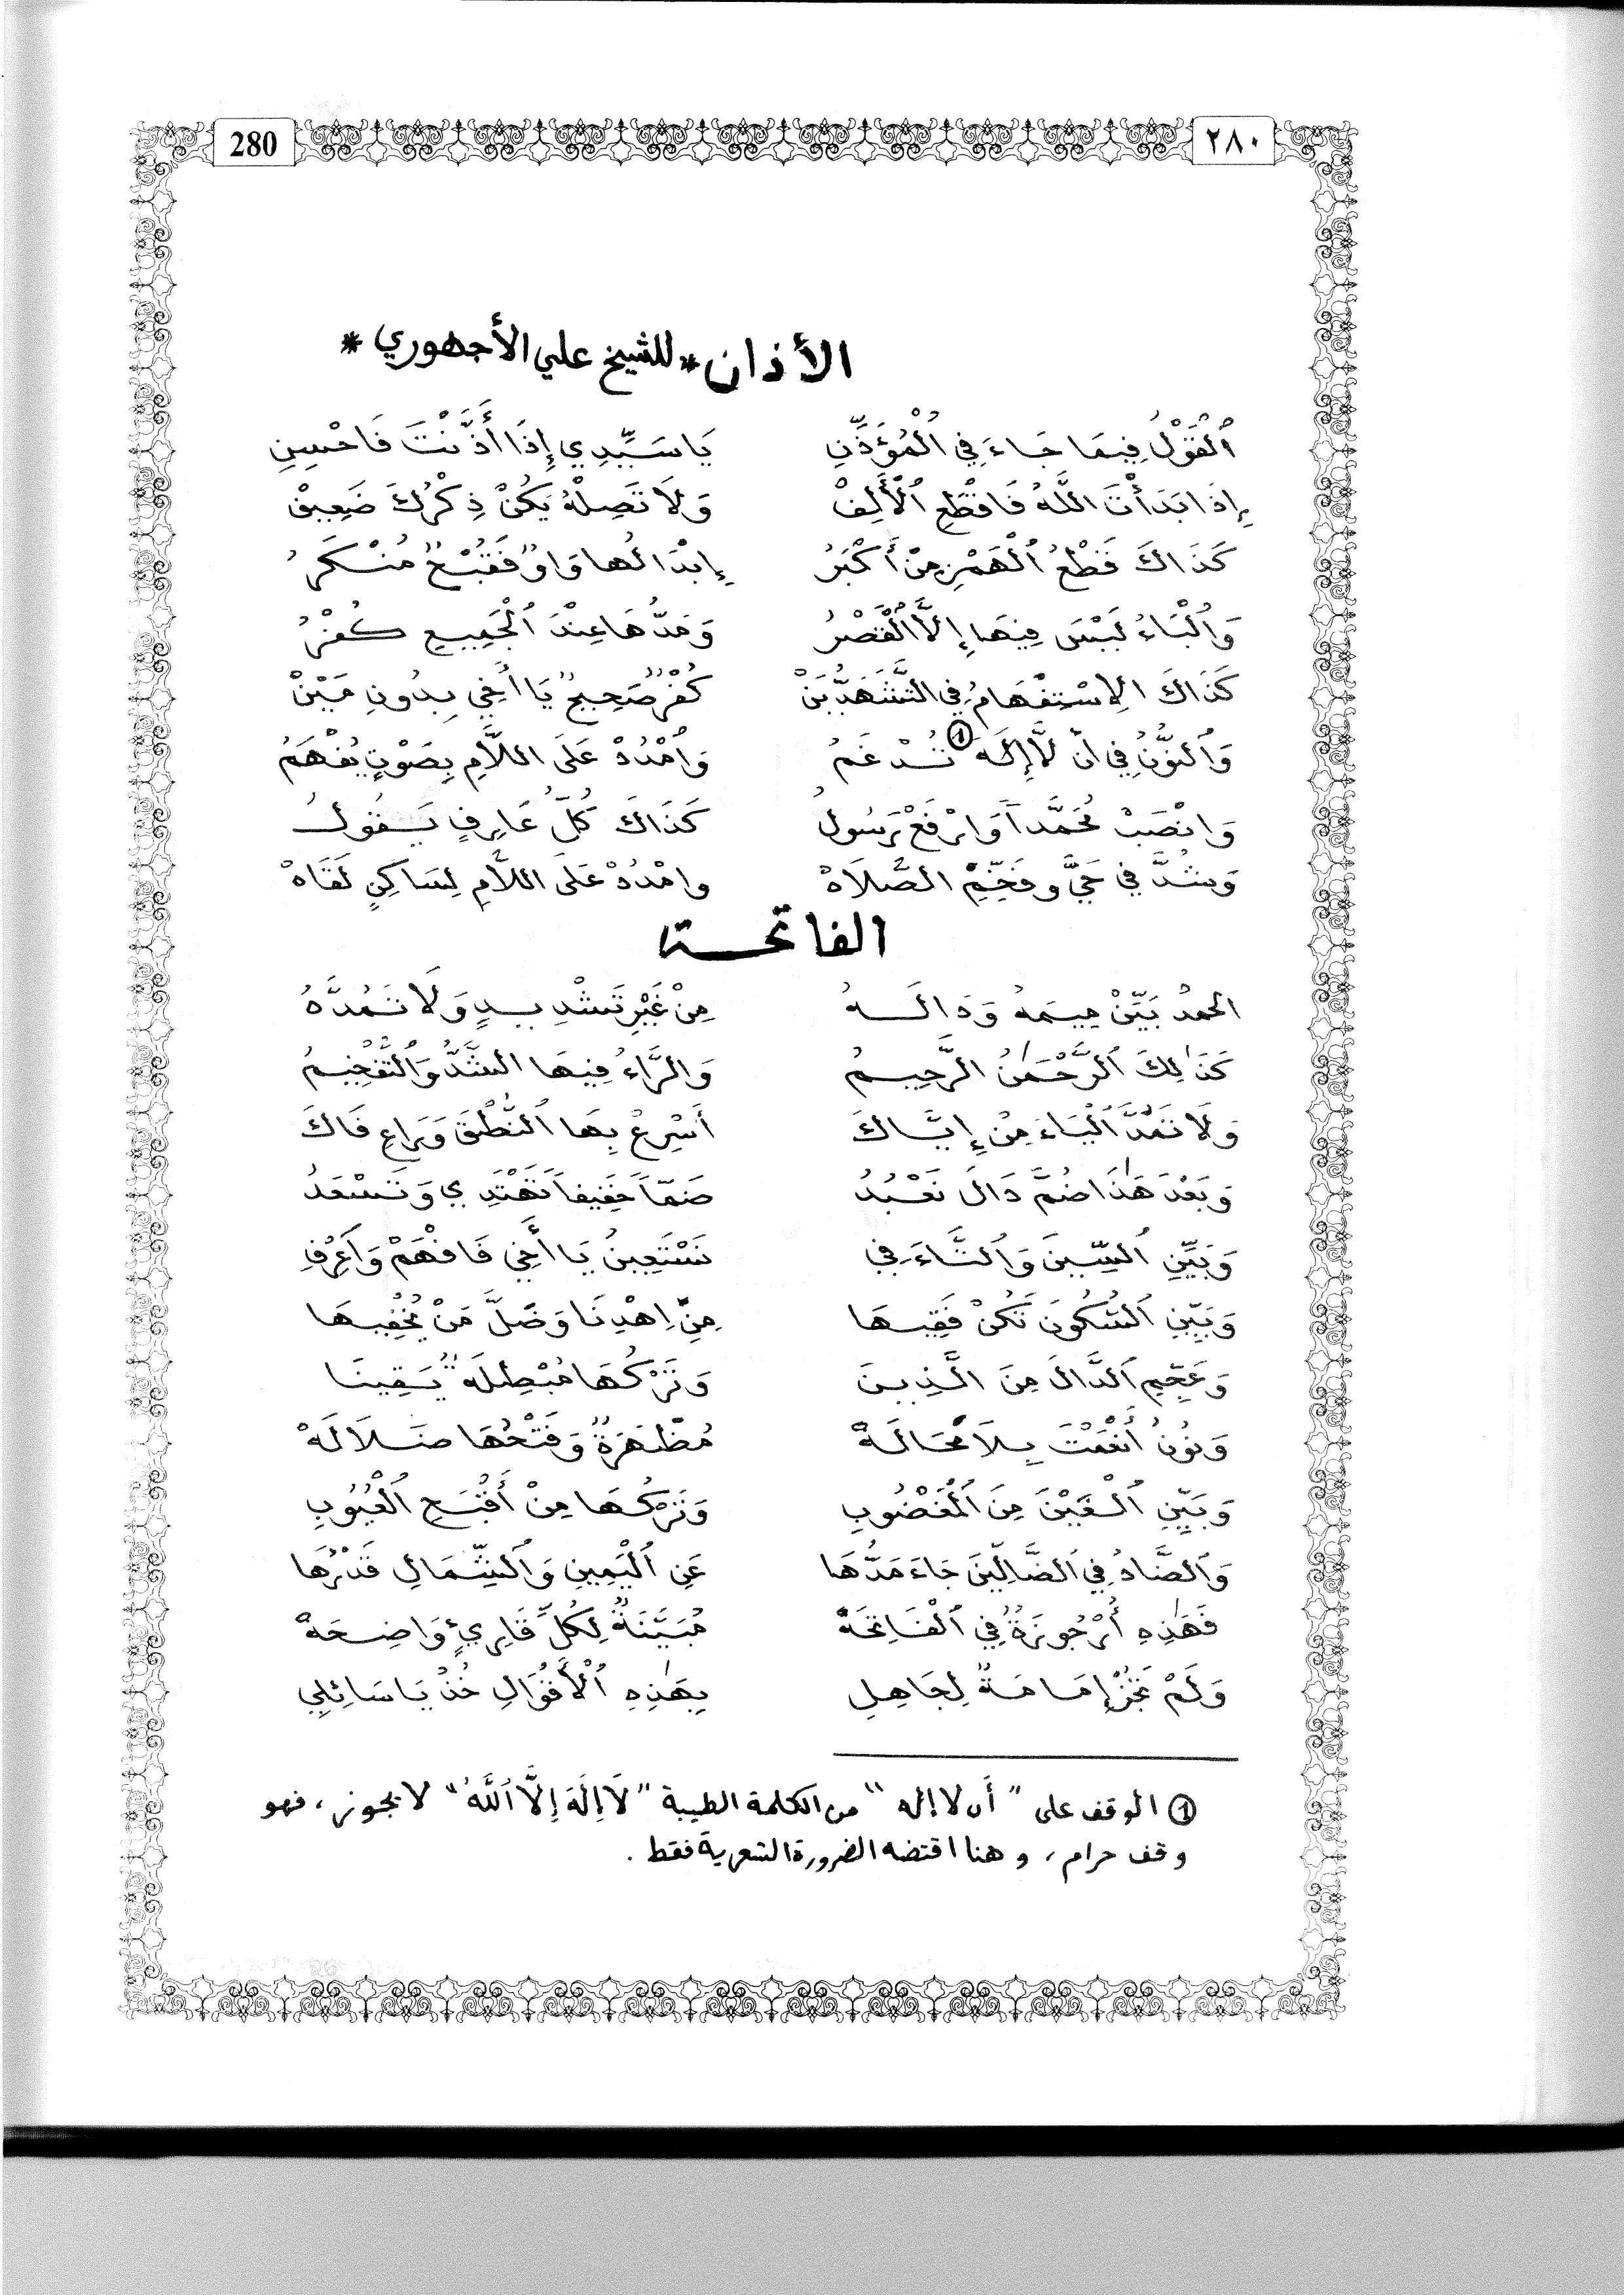 280
٢٨٠
الأذان * للشيخ علي الأجهوري *
اَلْقَوْلُ فِيمَا جَاءَ فِي الْمُؤَذِّنِ يَا سَيِّدِي إِذَا أَذَّنْتَ فَاحْسِنِ
إِذَا بَدَأْتَ اللَّهُ فَاقْطَعِ الْأَلِفْ وَلَا تَصِلْهُ يَكُنْ ذِكْرُكَ ضَعِيفْ
كَذَاكَ قَطْعُ الْهَمْزِ مِنْ أَكْبَرُ إِبْدَالُها وَاوٌ فَقُبْحٌ مُنْكَرُ
وَالْبَاءُ لَيْسَ فِيهَا إِلَّا الْقَصْرُ وَمَدُّهَا عِنْدَ الْجَمِيعِ كُفْرُ
كَذَاكَ الِاسْتِفْهَامُ فِي التَّشَهُّدَيْنْ كُفْرٌ صَحِيحٌ يَا أَخِي بِدُونِ مَيْنْ
وَالنُّونُ فِي أَنْ لَّا إِلَهَ ① تُدْغَمُ وَامْدُدْ عَلَى اللَّامِ بِصَوْتٍ يُفْهَمُ
وَانْصَبْ مُحَمَّداً وَارْفَعْ رَسُولُ كَذَاكَ كُلُّ عَارِفٍ يَقُولُ
وَشُدَّ فِي حَيَّ وفَخِّمِ الصَّلَاهْ وامْدُدْ عَلَى اللَّامِ لِسَاكِنٍ لَقَاهْ
الفاتحة
الحمدُ بَيِّنْ مِيمَهُ وَدَالَهُ مِنْ غَيْرِ تَشْدِيدٍ وَلَا تَمُدَّهُ
كَذَلِكَ الرَّحْمَنُ الرَّحِيمُ وَالرَّاءُ فِيهَا الشَّدُّ وَالتَّفْخِيمُ
وَلَا تَمُدَّ الْيَاءَ مِنْ إِيَّاكَ أَسْرِعْ بِهَا النُّطْقَ وَرَاعِ فَاكَ
وَبَعْدَ هَذَا ضُمَّ دَالَ نَعْبُدُ ضَمّاً خَفِيفاً تَهْتَدِي وَتَسْعَدُ
وَبَيِّنِ السِّينَ وَالتَّاءَ فِي نَسْتَعِينُ يَا أَخِي فَافْهَمْ وَاَعْرِفِ
وَبَيِّنِ السُّكُونَ تَكُنْ فَقِيهَا مِنِ اِهْدِنَا وَضَلَّ مَنْ يُخْفِيهَا
وَعَجِّمِ الذَّالَ مِنَ الَّذِينَ وَتَرْكُهَا مُبْطِلَةٌ يَقِينَا
وَنُونُ أَنْعَمْتَ بِلَا مَحَالَهْ مُظْهَرَةٌ وَفَتْحُهَا ضَلَالَهْ
وَبَيِّنِ الْغَيْنَ مِنَ الْمَغْضُوبِ وَتَرْكُهَا مِنْ أَقْبَحِ الْعُيُوبِ
وَالضَّادُ فِي الضَّالِّينَ جَاءَ مَدُّهَا عَنِ الْيَمِينِ وَالشِّمَالِ قَدْرُهَا
فَهَذِهِ أُرْجُوزَةٌ فِي الْفَاتِحَهْ مُبَيَّنَةٌ لِكُلِّ قَارِيءٍ وَاضِحَهْ
وَلَمْ تَجُزْ إِمَامَةٌ لِجَاهِلِ بِهَذِهِ الْأَقْوَالِ خُذْ يَا سَائِلِي
① الوقف على "أَن لا إله" من الكلمة الطيبة "لَا إِلَهَ إِلَّا اللَّهُ" لا يجوز، فهو
وقف حرام، وهنا اقتضه الضرورة الشعرية فقط.